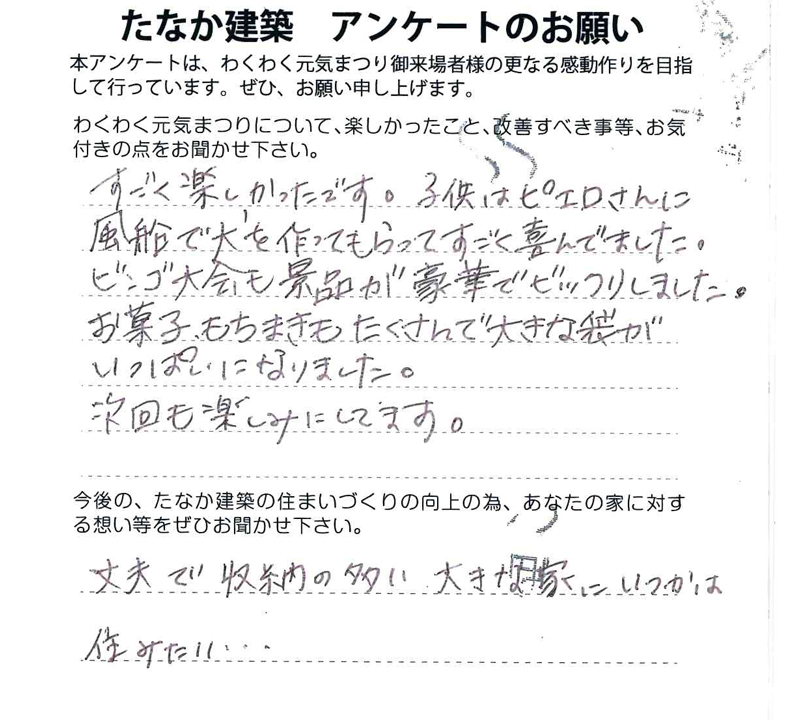 たなか建築　アンケートのお願い
本アンケートは、わくわく元気まつり御来場者様の更なる感動作りを目指
して行っています。ぜひ、お願い申し上げます。
わくわく元気まつりについて、楽しかったこと、改善すべき事等、お気
付きの点をお聞かせ下さい。
すごく楽しかったです。子供はピエロさんに
風船で犬を作ってもらってすごく喜んでました。
ビンゴ大会も景品が豪華でビックリしました。
お菓子、もちまきもたくさんで大きな袋が
いっぱいになりました。
次回も楽しみにしてます。
今後の、たなか建築の住まいづくりの向上の為、あなたの家に対す
る想い等をぜひお聞かせ下さい。
丈夫で収納の多い大きな家にいつかは
住みたい・・・